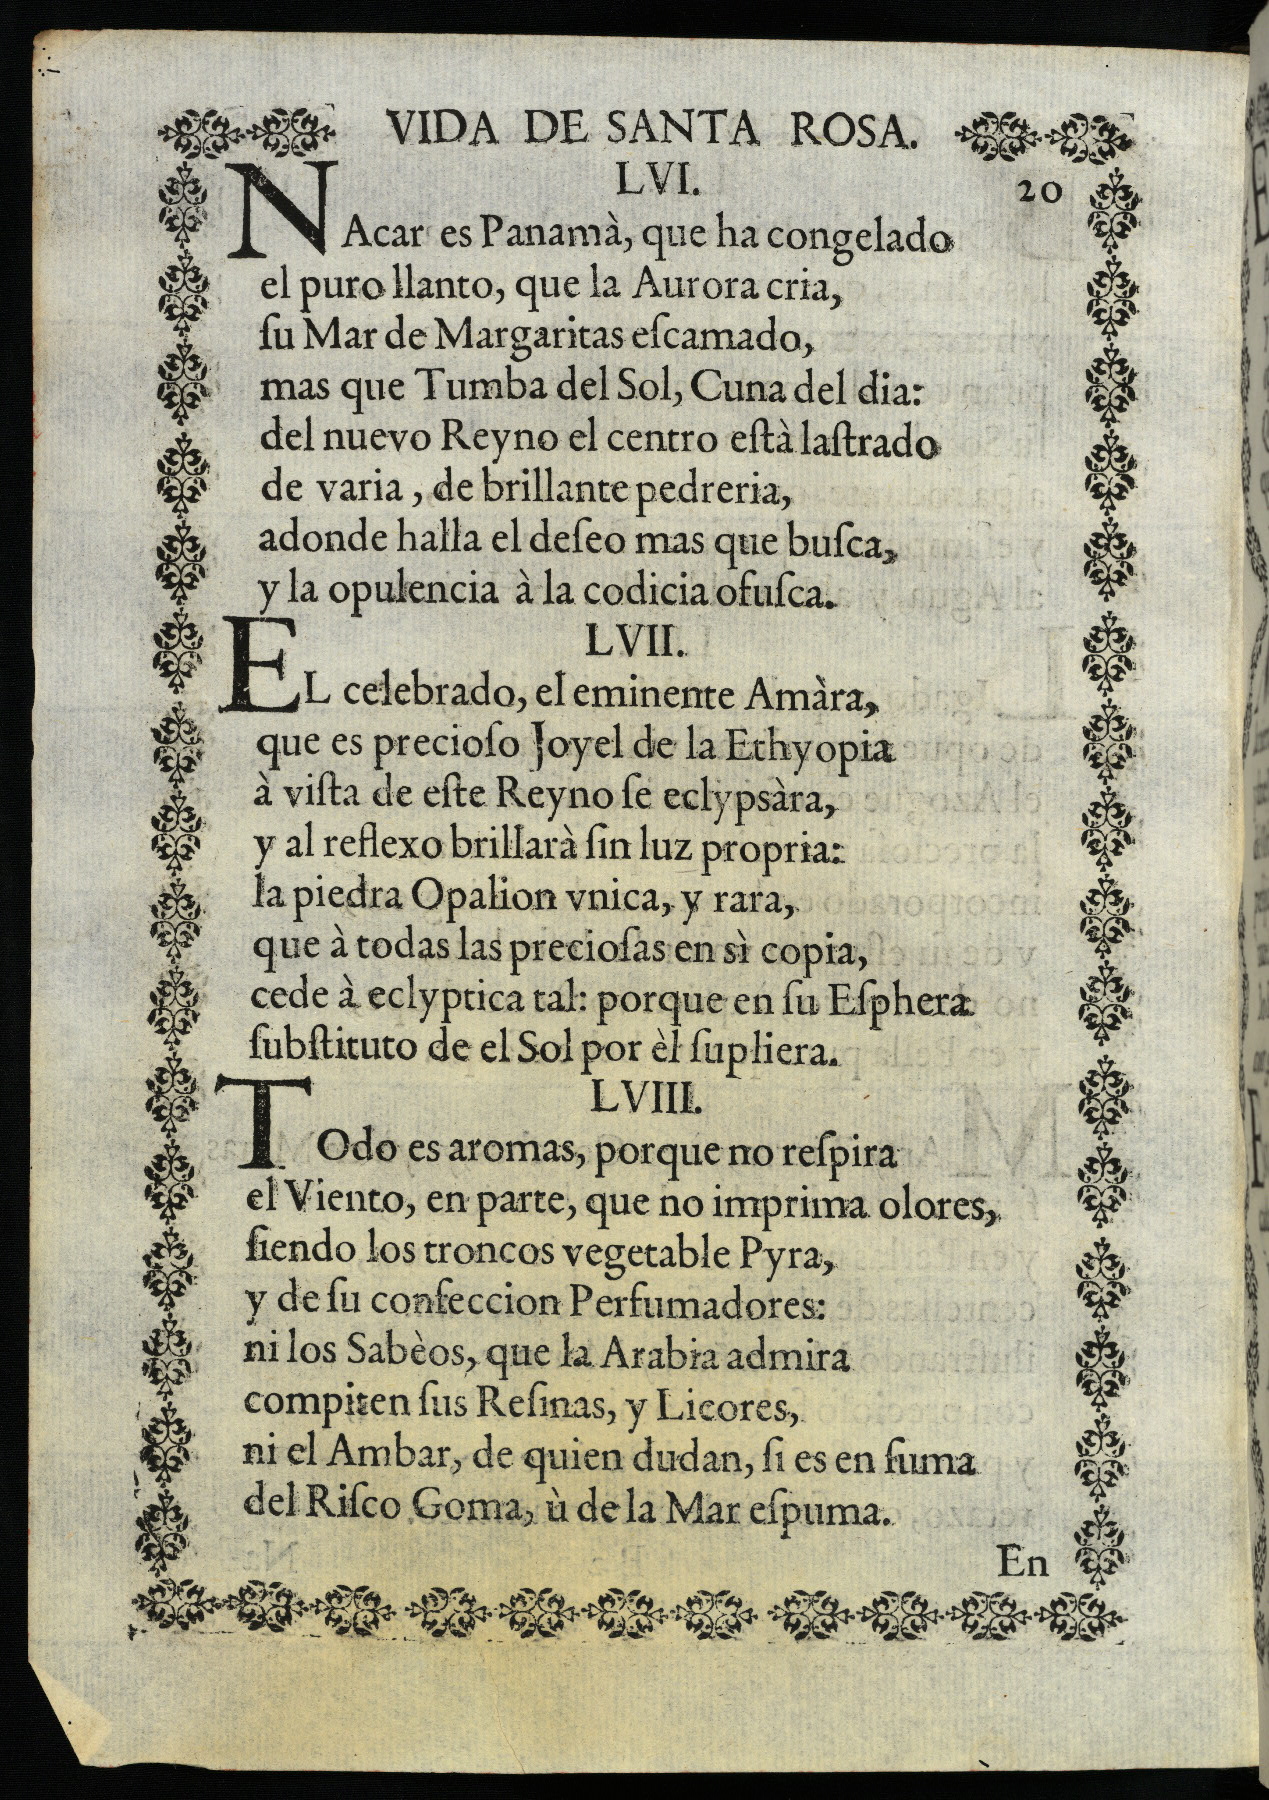 VIDA DE SANTA ROSA.
LVI.
20
NAcar es Panamà, que ha congelado
el puro llanto, que la Aurora cria,
ſu Mar de Margaritas eſcamado,
mas que Tumba del Sol, Cuna del dia:
del nuevo Reyno el centro eſtà laſtrado
de varia, de brillante pedreria,
adonde halla el deſeo mas que buſca,
y la opulencia à la codicia ofuſca.
LVII.
EL celebrado, el eminente Amàra,
que es precioſo Joyel de la Ethyopia
à viſta de eſte Reyno ſe eclypsàra,
y al reflexo brillarà ſin luz propria:
la piedra Opalion vnica, y rara,
que à todas las precioſas en sì copia,
cede à eclyptica tal: porque en ſu Eſphera
ſubſtituto de el Sol por èl ſupliera.
LVIII.
TOdo es aromas, porque no reſpira
el Viento, en parte, que no imprima olores,
ſiendo los troncos vegetable Pyra,
y de ſu confeccion Perfumadores:
ni los Sabèos, que la Arabia admira
compiten ſus Reſinas, y Licores,
ni el Ambar, de quien dudan, ſi es en ſuma
del Riſco Goma, ù de la Mar eſpuma.
En